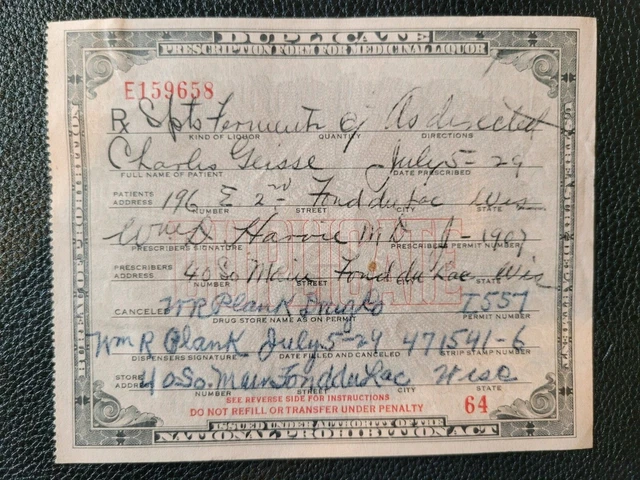 DUPLICATE
PRESCRIPTION FORM FOR MEDICINAL LIQUOR
E159658
Rx Spts Fermenti As directed
KIND OF LIQUOR QUANTITY DIRECTIONS
Charles Geisse July 5-29
FULL NAME OF PATIENT DATE PRESCRIBED
PATIENTS ADDRESS 196 E. 2nd Fond du Lac Wis
NUMBER STREET CITY STATE
Wm D Harvie M D J-1907
PRESCRIBERS SIGNATURE PRESCRIBERS PERMIT NUMBER
PRESCRIBERS ADDRESS 40 So Main Fond du Lac Wis
NUMBER STREET CITY STATE
CANCELED WR Plank Drug Co I557
DRUG STORE NAME AS ON PERMIT PERMIT NUMBER
Wm R Plank July 5-29 471541-6
DISPENSERS SIGNATURE DATE FILLED AND CANCELED STRIP STAMP NUMBER
STORE ADDRESS 40 So. Main Fond du Lac, Wisc
NUMBER STREET CITY STATE
SEE REVERSE SIDE FOR INSTRUCTIONS
DO NOT REFILL OR TRANSFER UNDER PENALTY 64
ISSUED UNDER AUTHORITY OF THE
NATIONAL PROHIBITION ACT
DUPLICATE